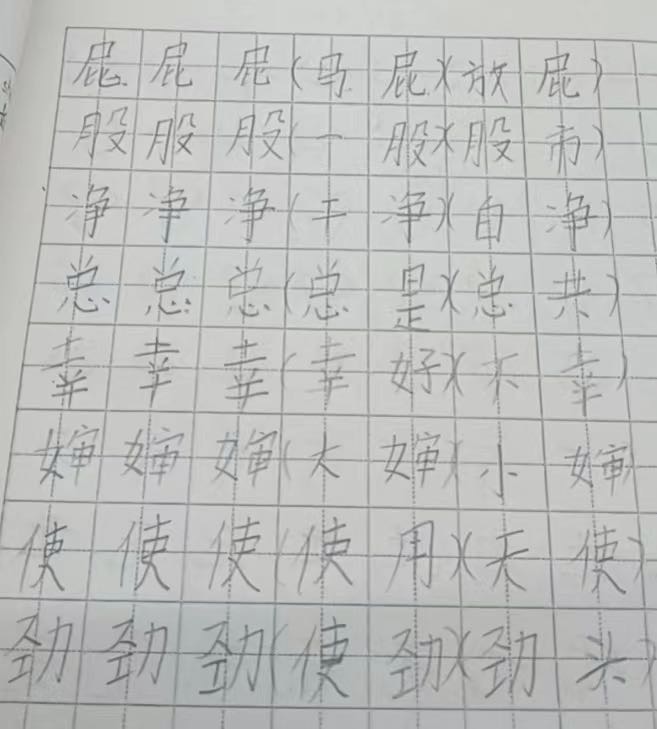 屁屁屁(马屁)(放屁)
股股股(一股)(股市)
净净净(干净)(自净)
总总总(总是)(总共)
幸幸幸(幸好)(不幸)
婶婶婶(大婶)(小婶)
使使使(使用)(天使)
劲劲劲(使劲)(劲头)